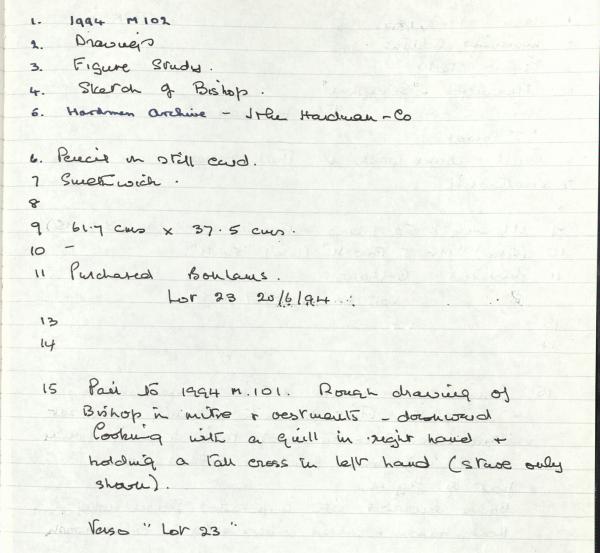 1. 1994 M 102
2. Drawings
3. Figure Study.
4. Sketch of Bishop.
5. Hardman Archive - John Hardman - Co
6. Pencil on still card.
7 Smethwick.
8
9 61.7 cms x 37.5 cms.
10 -
11 Purchased Bonhams.
Lot 23 20/6/94
13
14
15 Pair to 1994 M.101. Rough drawing of
Bishop in mitre + vestments - downward
looking with a quill in right hand +
holding a tall cross in left hand (stave only
shown).
Verso "Lot 23"